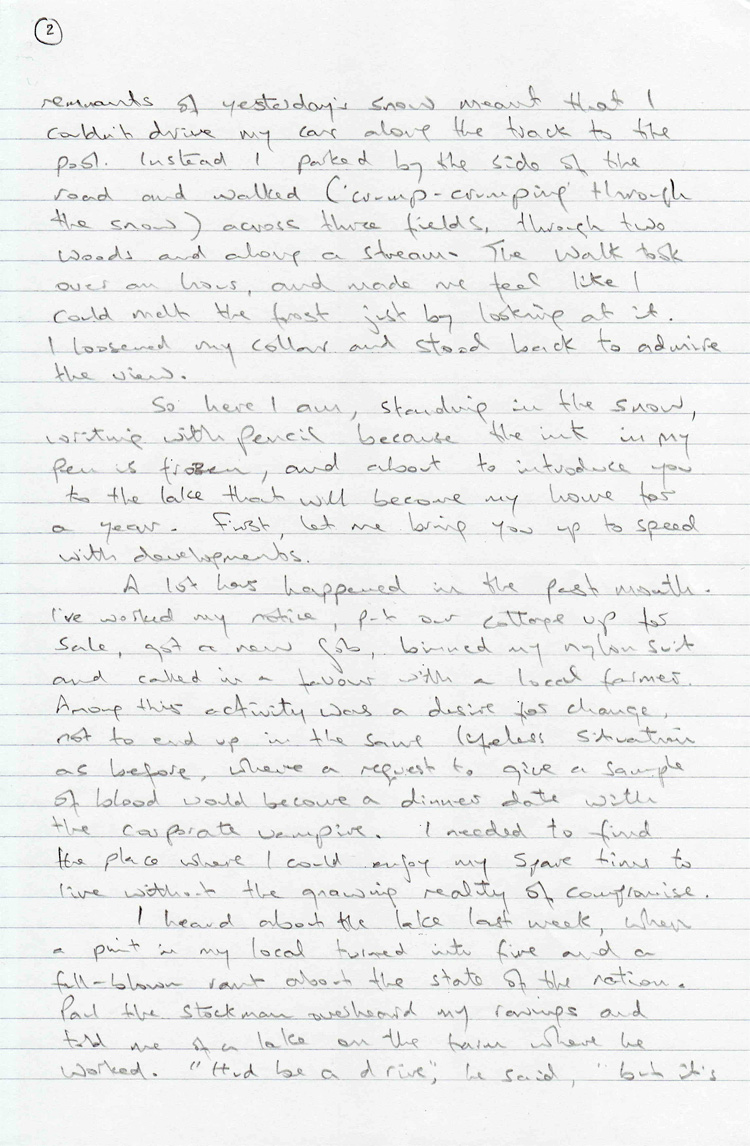 2
remnants of yesterday's snow meant that I
couldn't drive my car along the track to the
pool. Instead I parked by the side of the
road and walked ('crump-crumping' through
the snow) across three fields, through two
woods and along a stream. The walk took
over an hour, and made me feel like I
could melt the frost just by looking at it.
I loosened my collar and stood back to admire
the view.
So here I am, standing in the snow,
writing with pencil because the ink in my
pen is frozen, and about to introduce you
to the lake that will become my home for
a year. First, let me bring you up to speed
with developments.
A lot has happened in the past month.
I've worked my notice, put our cottage up for
sale, got a new job, binned my nylon suit
and called in a favour with a local farmer.
Among this activity was a desire for change,
not to end up in the same lifeless situation
as before, where a request to give a sample
of blood would become a dinner date with
the corporate vampire. I needed to find
the place where I could enjoy my spare time to
live without the growing reality of compromise.
I heard about the lake last week, when
a pint in my local turned into five and a
full-blown rant about the state of the nation.
Paul the stockman overheard my ravings and
told me of a lake on the farm where he
worked. "It'd be a drive," he said, "but it's